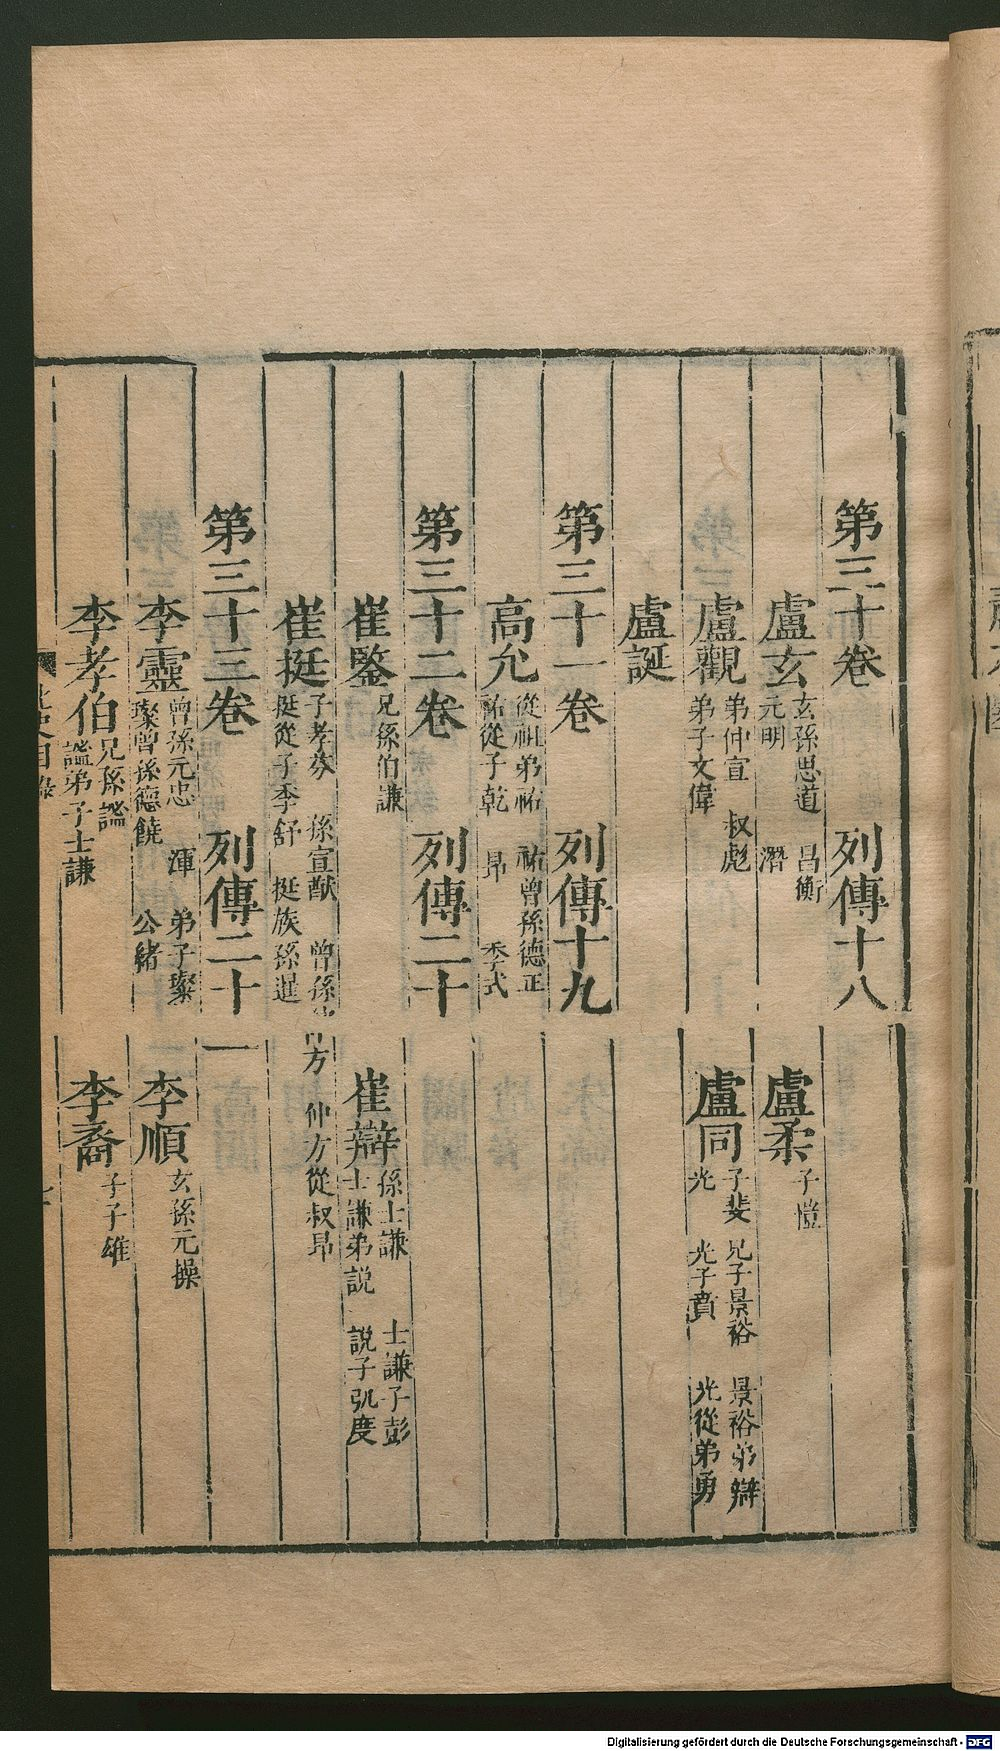 第三十卷　列傳十八
盧玄　玄孫思道　昌衡　元明　潛　盧柔　子愷
盧觀　弟仲宣　叔彪　弟子文偉　盧同　子斐　兄子景裕　景裕弟辯　光　光子賁　光從弟勇
盧誕
第三十一卷　列傳十九
高允　從祖弟祐　祐曾孫德正　祐從子乾　昂　季式
第三十二卷　列傳二十
崔鑒　兄孫伯謙　崔辯　孫士謙　士謙子彭　士謙弟説　説子弘度
崔挺　子孝芬　孫宣猷　曾孫仲方　仲方從叔昂　挺從子季舒　挺族孫暹
第三十三卷　列傳二十一
李靈　曾孫元忠　渾　弟子璨　璨曾孫德饒　公緒　李順　玄孫元操
李孝伯　兄孫謐　謐弟子士謙　李裔　子子雄
北史目錄
七
Digitalisierung gefördert durch die Deutsche Forschungsgemeinschaft - DFG